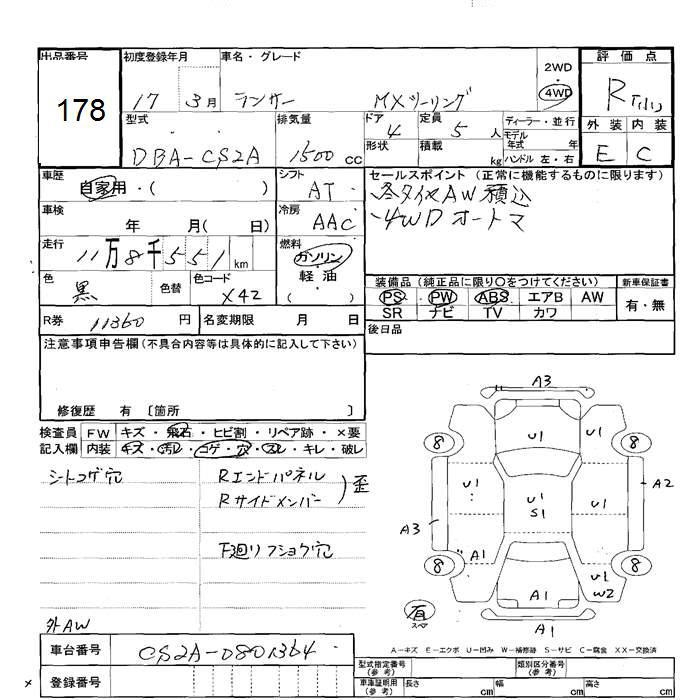 出品番号 初度登録年月 車名・グレード 2WD ・ 4WD 評価点
178 17 3月 ランサー MXツーリング R
型式 排気量 ドア 4 定員 5 人 ディーラー・並行 外装 内装
DBA-CS2A 1500 cc 形状 積載 kg モデル年式 年 ハンドル 左・右 E C
車歴 自家用・( ) シフト AT セールスポイント (正常に機能するものに限ります)
冬タイヤAW積込
車検 年 月( 日) 冷房 AAC -4WDオートマ
走行 11万8千551km 燃料 ガソリン 軽油 ( )
色 黒 色替 色コード X42 装備品 (純正品に限り○をつけてください) 新車保証書
PS PW ABS エアB AW 有・無
SR ナビ TV カワ
R券 11360 円 名変期限 月 日 後日品
注意事項申告欄(不具合内容等は具体的に記入して下さい)
修復歴 有 〔箇所 〕
検査員 FW キズ・飛石・ヒビ割・リペア跡・×要
記入欄 内装 キズ・汚レ・コゲ・穴・スレ・キレ・破レ
シートコゲ穴 Rエンドパネル
Rサイドメンバー )歪
下廻リフショク穴
外AW
A3
8 U1 U1 8
U1 U1 S1 U1 A2
A3
8 A1 A1 U1 W2 8
有 スペア A1
A-キズ E-エクボ U-凹み W-補修跡 S-サビ C-腐食 XX-交換済
車台番号 CS2A-0801364
型式指定番号(参考) 類別区分番号(参考)
× 登録番号 車庫証明用(参考) 長さ cm 幅 cm 高さ cm